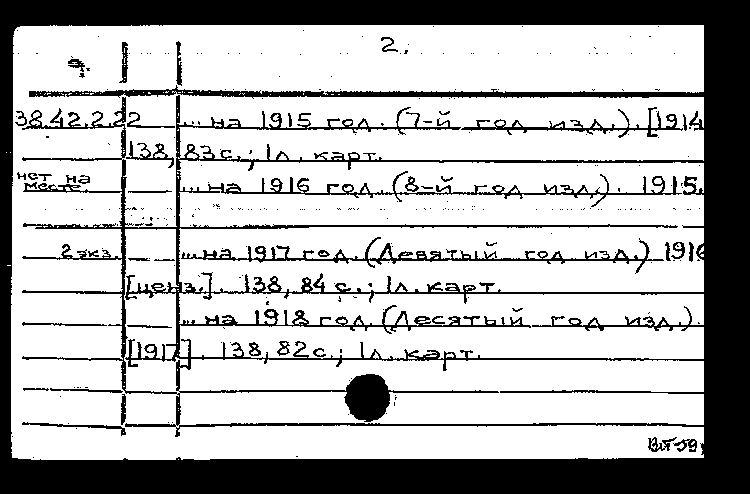 2.
38.42.2.22 ... на 1915 год. (7-й год изд.). [1914
138, 83с.; 1л. карт.
нет на месте. ... на 1916 год. (8-й год изд.). 1915.
2 экз. ... на 1917 год. (Девятый год изд.) 1916
[ценз.]. 138, 84 с.; 1л. карт.
... на 1918 год. (Десятый год изд.).
[1917]. 138, 82с.; 1л. карт.